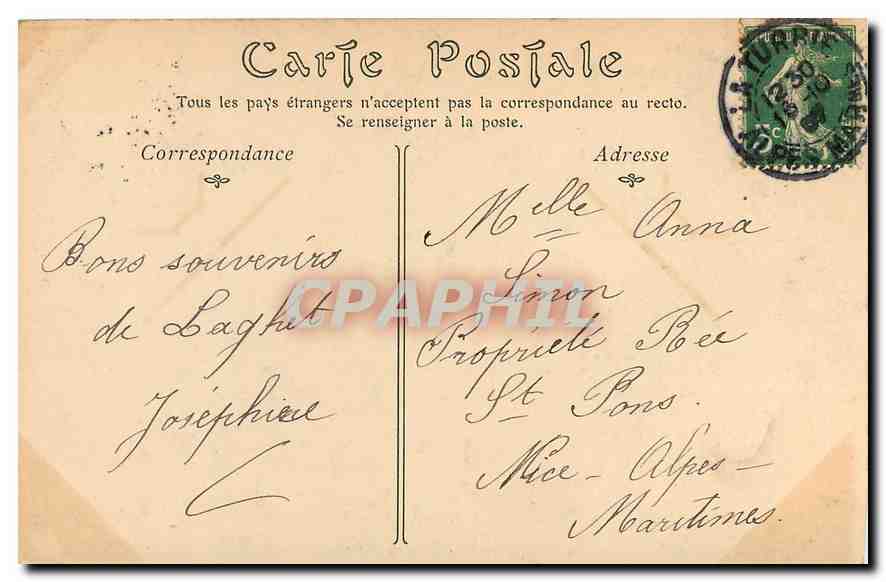 Carte Postale
Tous les pays étrangers n'acceptent pas la correspondance au recto.
Se renseigner à la poste.
Correspondance
Adresse
Bons souvenirs
de Laghet
Joséphine
Melle Anna
Simon
Propriété Rée
St Pons.
Nice - Alpes -
Maritimes.
CPAPHIL
LA TURBIE
5c